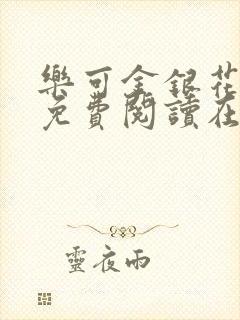 樂可金銀花
免費閱讀在
靈夜雨